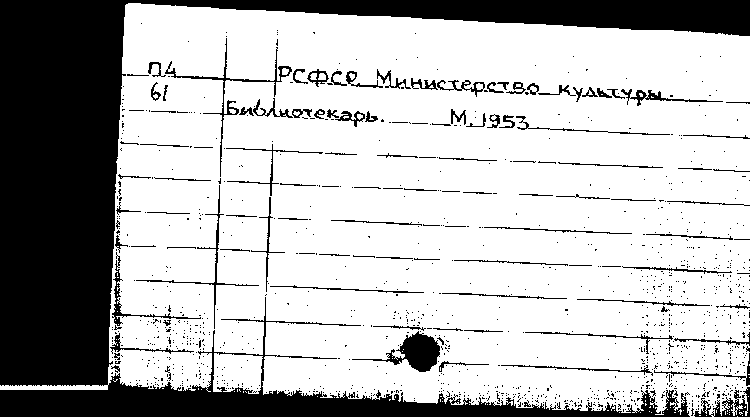 П4 РСФСР. Министерство культуры.
61
Библиотекарь. М. 1953